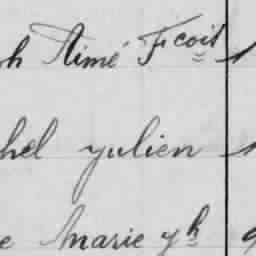 h Aimé Fcois
hel Julien
e Marie Jh